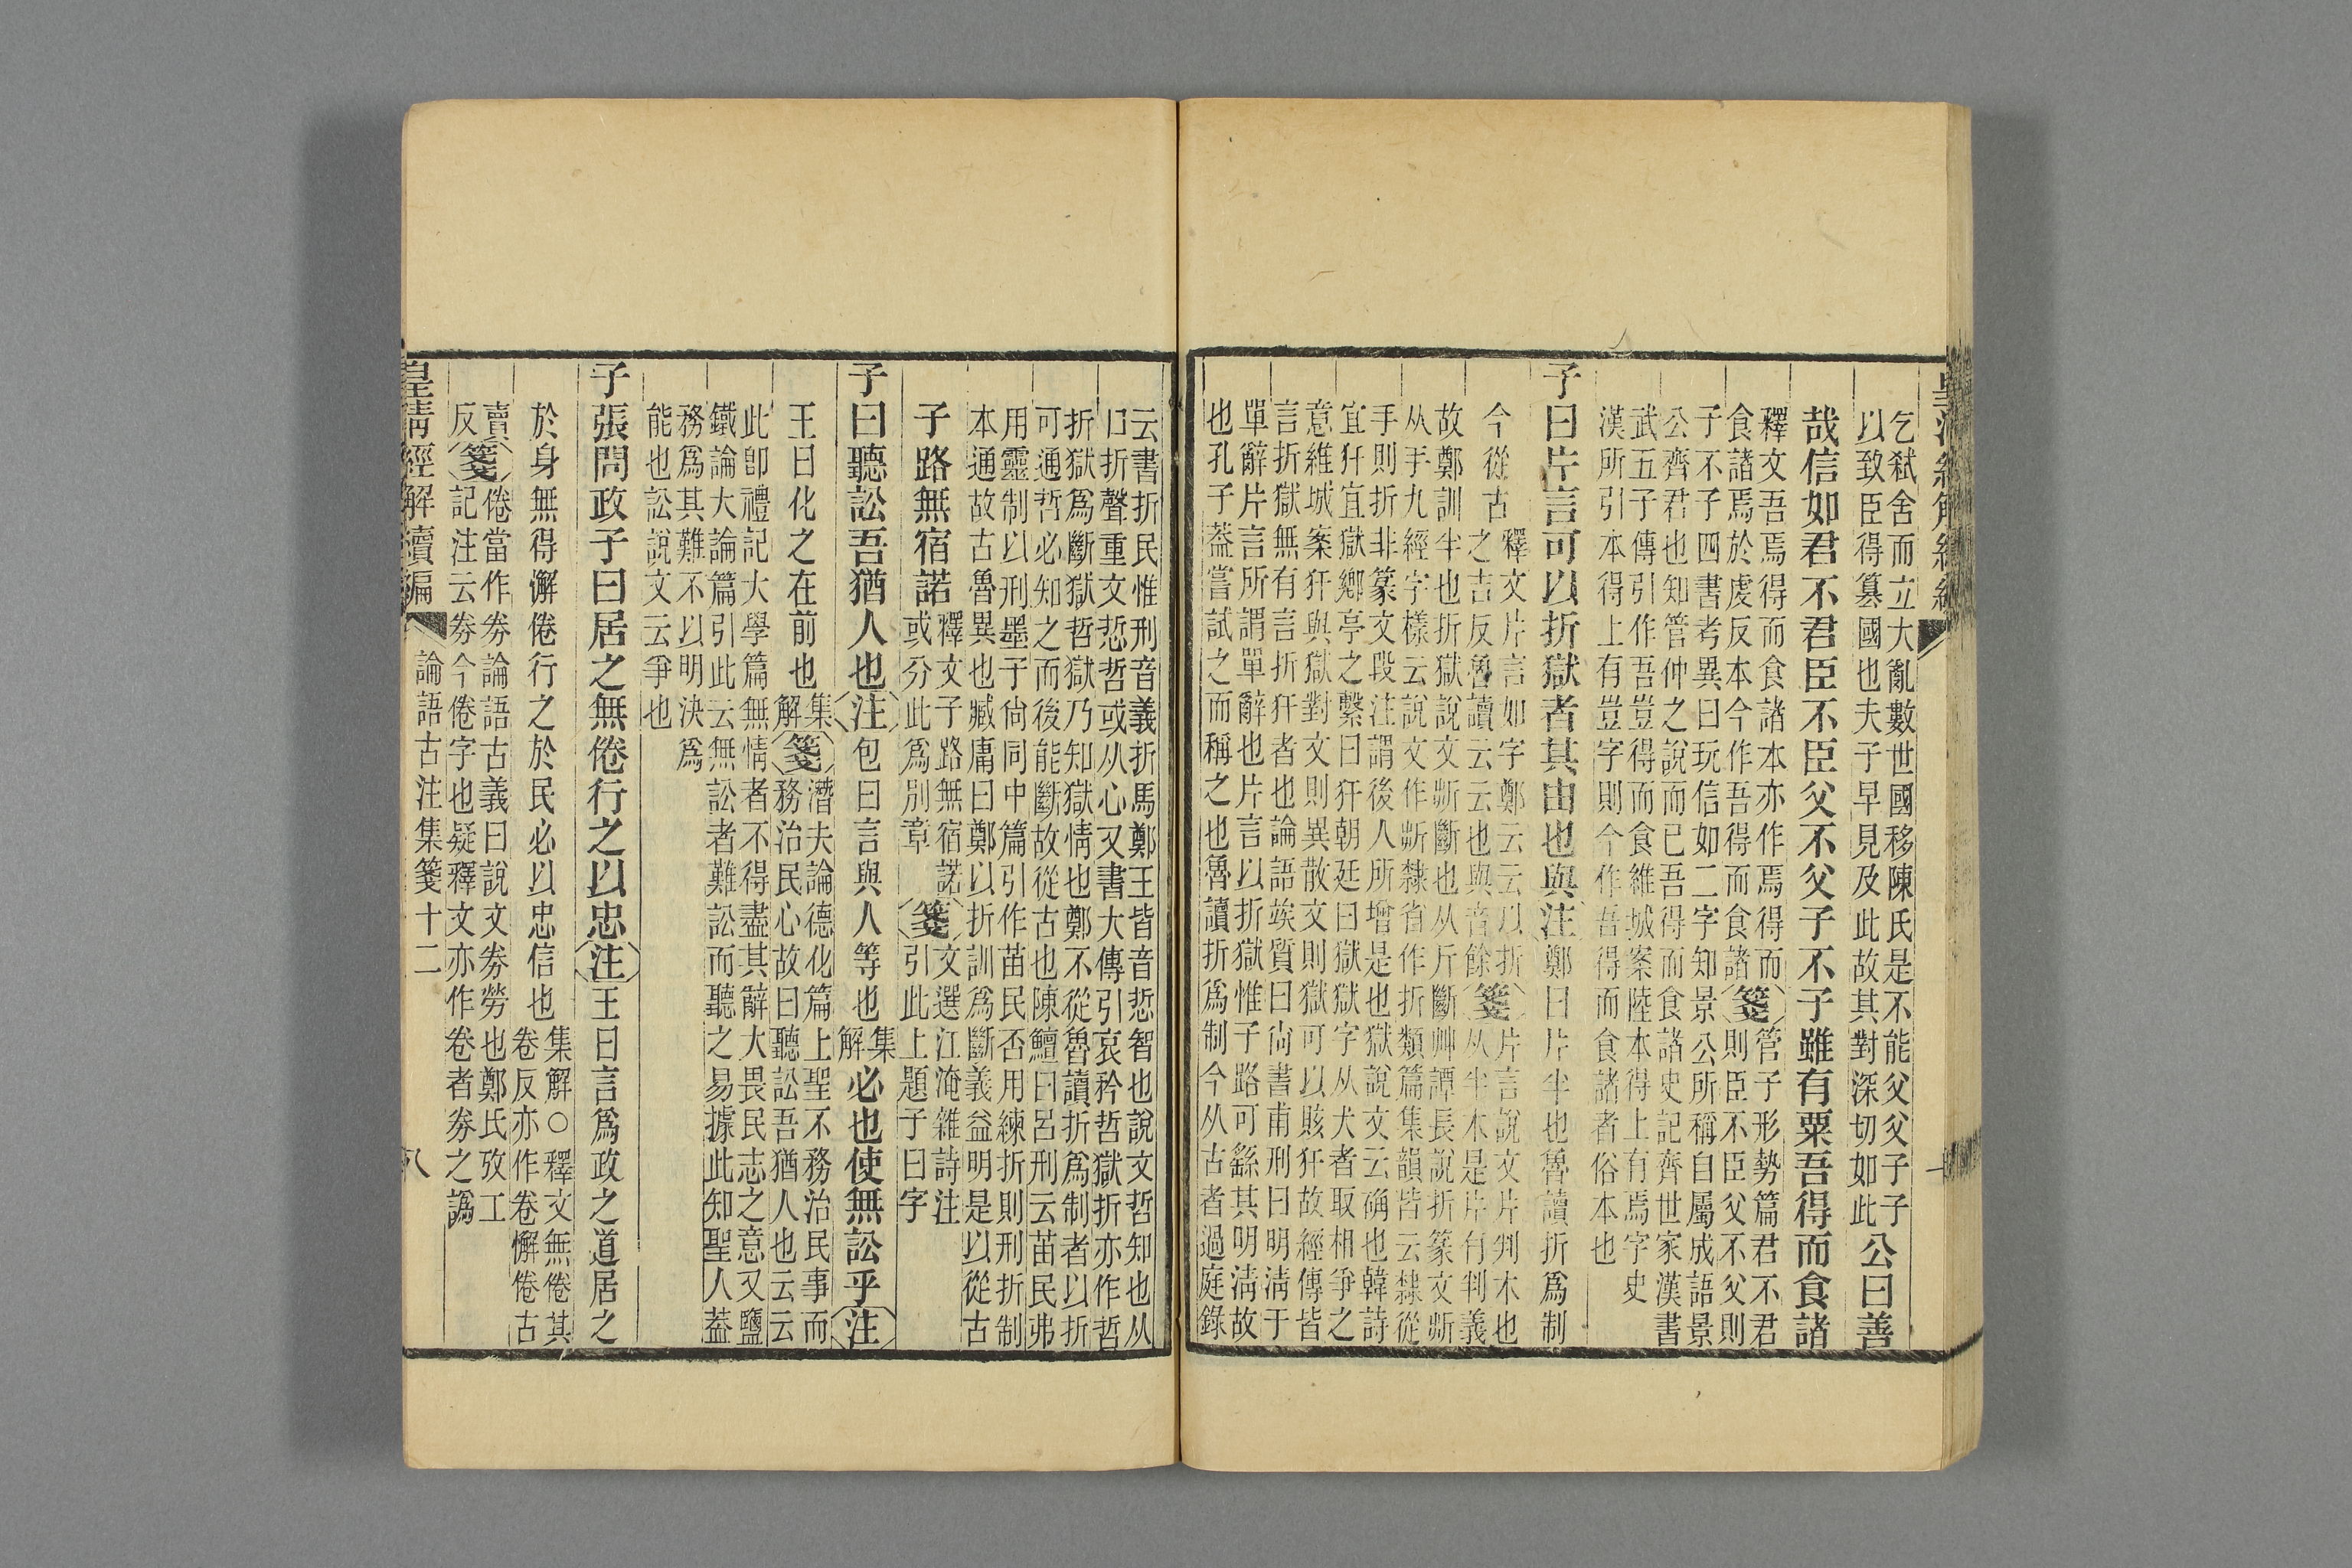 乞弒舍而立大亂數世國移陳氏是不能父父子子
以致臣得篡國也夫子早見及此故其對深切如此
公曰善
哉信如君不君臣不臣父不父子不子雖有粟吾得而食諸
釋文吾焉得而食諸本亦作焉得而
食諸焉於虔反本今作吾得而食諸
箋
管子形勢篇君不君
則臣不臣父不父則
子不子四書考異曰玩信如二字知景公所稱自屬成語景
公齊君也知管仲之說而已吾得而食諸史記齊世家漢書
武五子傳引作吾豈得而食維城案陸本得上有焉字史
漢所引本得上有豈字則今作吾得而食諸者俗本也
子曰片言可以折獄者其由也與
注
鄭曰片半也魯讀折爲制
今從古
釋文片言如字鄭云云以折
之吉反魯讀云云也與音餘
箋
片言說文片判木也
从半木是片有判義
故鄭訓半也折獄說文斷斷也从斤斷艸譚長說折篆文斷
从手九經字樣云說文作斷隸省作折類篇集韻皆云隸從
手則折非篆文段注謂後人所增是也獄說文云确也韓詩
宜犴宜獄鄉亭之繫曰犴朝廷曰獄獄字从犬者取相爭之
意維城案犴與獄對文則異散文則獄可以賅犴故經傳皆
言折獄無有言折犴者也論語竢質曰尚書甫刑曰明淸于
單辭片言所謂單辭也片言以折獄惟子路可繇其明淸故
也孔子蓋嘗試之而稱之也魯讀折爲制今从古者過庭錄
云書折民惟刑音義折馬鄭王皆音悊智也說文哲知也从
口折聲重文悊哲或从心又書大傳引哀矜哲獄折亦作哲
折獄爲斷獄哲獄乃知獄情也鄭不從魯讀折爲制者以折
可通哲必知之而後能斷故從古也陳鱣曰呂刑云苗民弗
用靈制以刑墨子尙同中篇引作苗民否用練折則刑折制
本通故古魯異也臧庸曰鄭以折訓爲斷義益明是以從古
子路無宿諾
釋文子路無宿諾
或分此爲別章
箋
文選江淹雜詩注
引此上題子曰字
子曰聽訟吾猶人也
注
包曰言與人等也
集
解
必也使無訟乎
注
王曰化之在前也
集
解
箋
潛夫論德化篇上聖不務治民事而
務治民心故曰聽訟吾猶人也云云
此卽禮記大學篇無情者不得盡其辭大畏民志之意又鹽
鐵論大論篇引此云無訟者難訟而聽之易據此知聖人蓋
務爲其難不以明決爲
能也訟說文云爭也
子張問政子曰居之無倦行之以忠
注
王曰言爲政之道居之
於身無得懈倦行之於民必以忠信也
集解○釋文無倦其
卷反亦作卷懈倦古
賣
反
箋
倦當作劵論語古義曰說文劵勞也鄭氏攷工
記注云劵今倦字也疑釋文亦作卷者劵之譌
皇淸經解續編
論語古注集箋十二
八